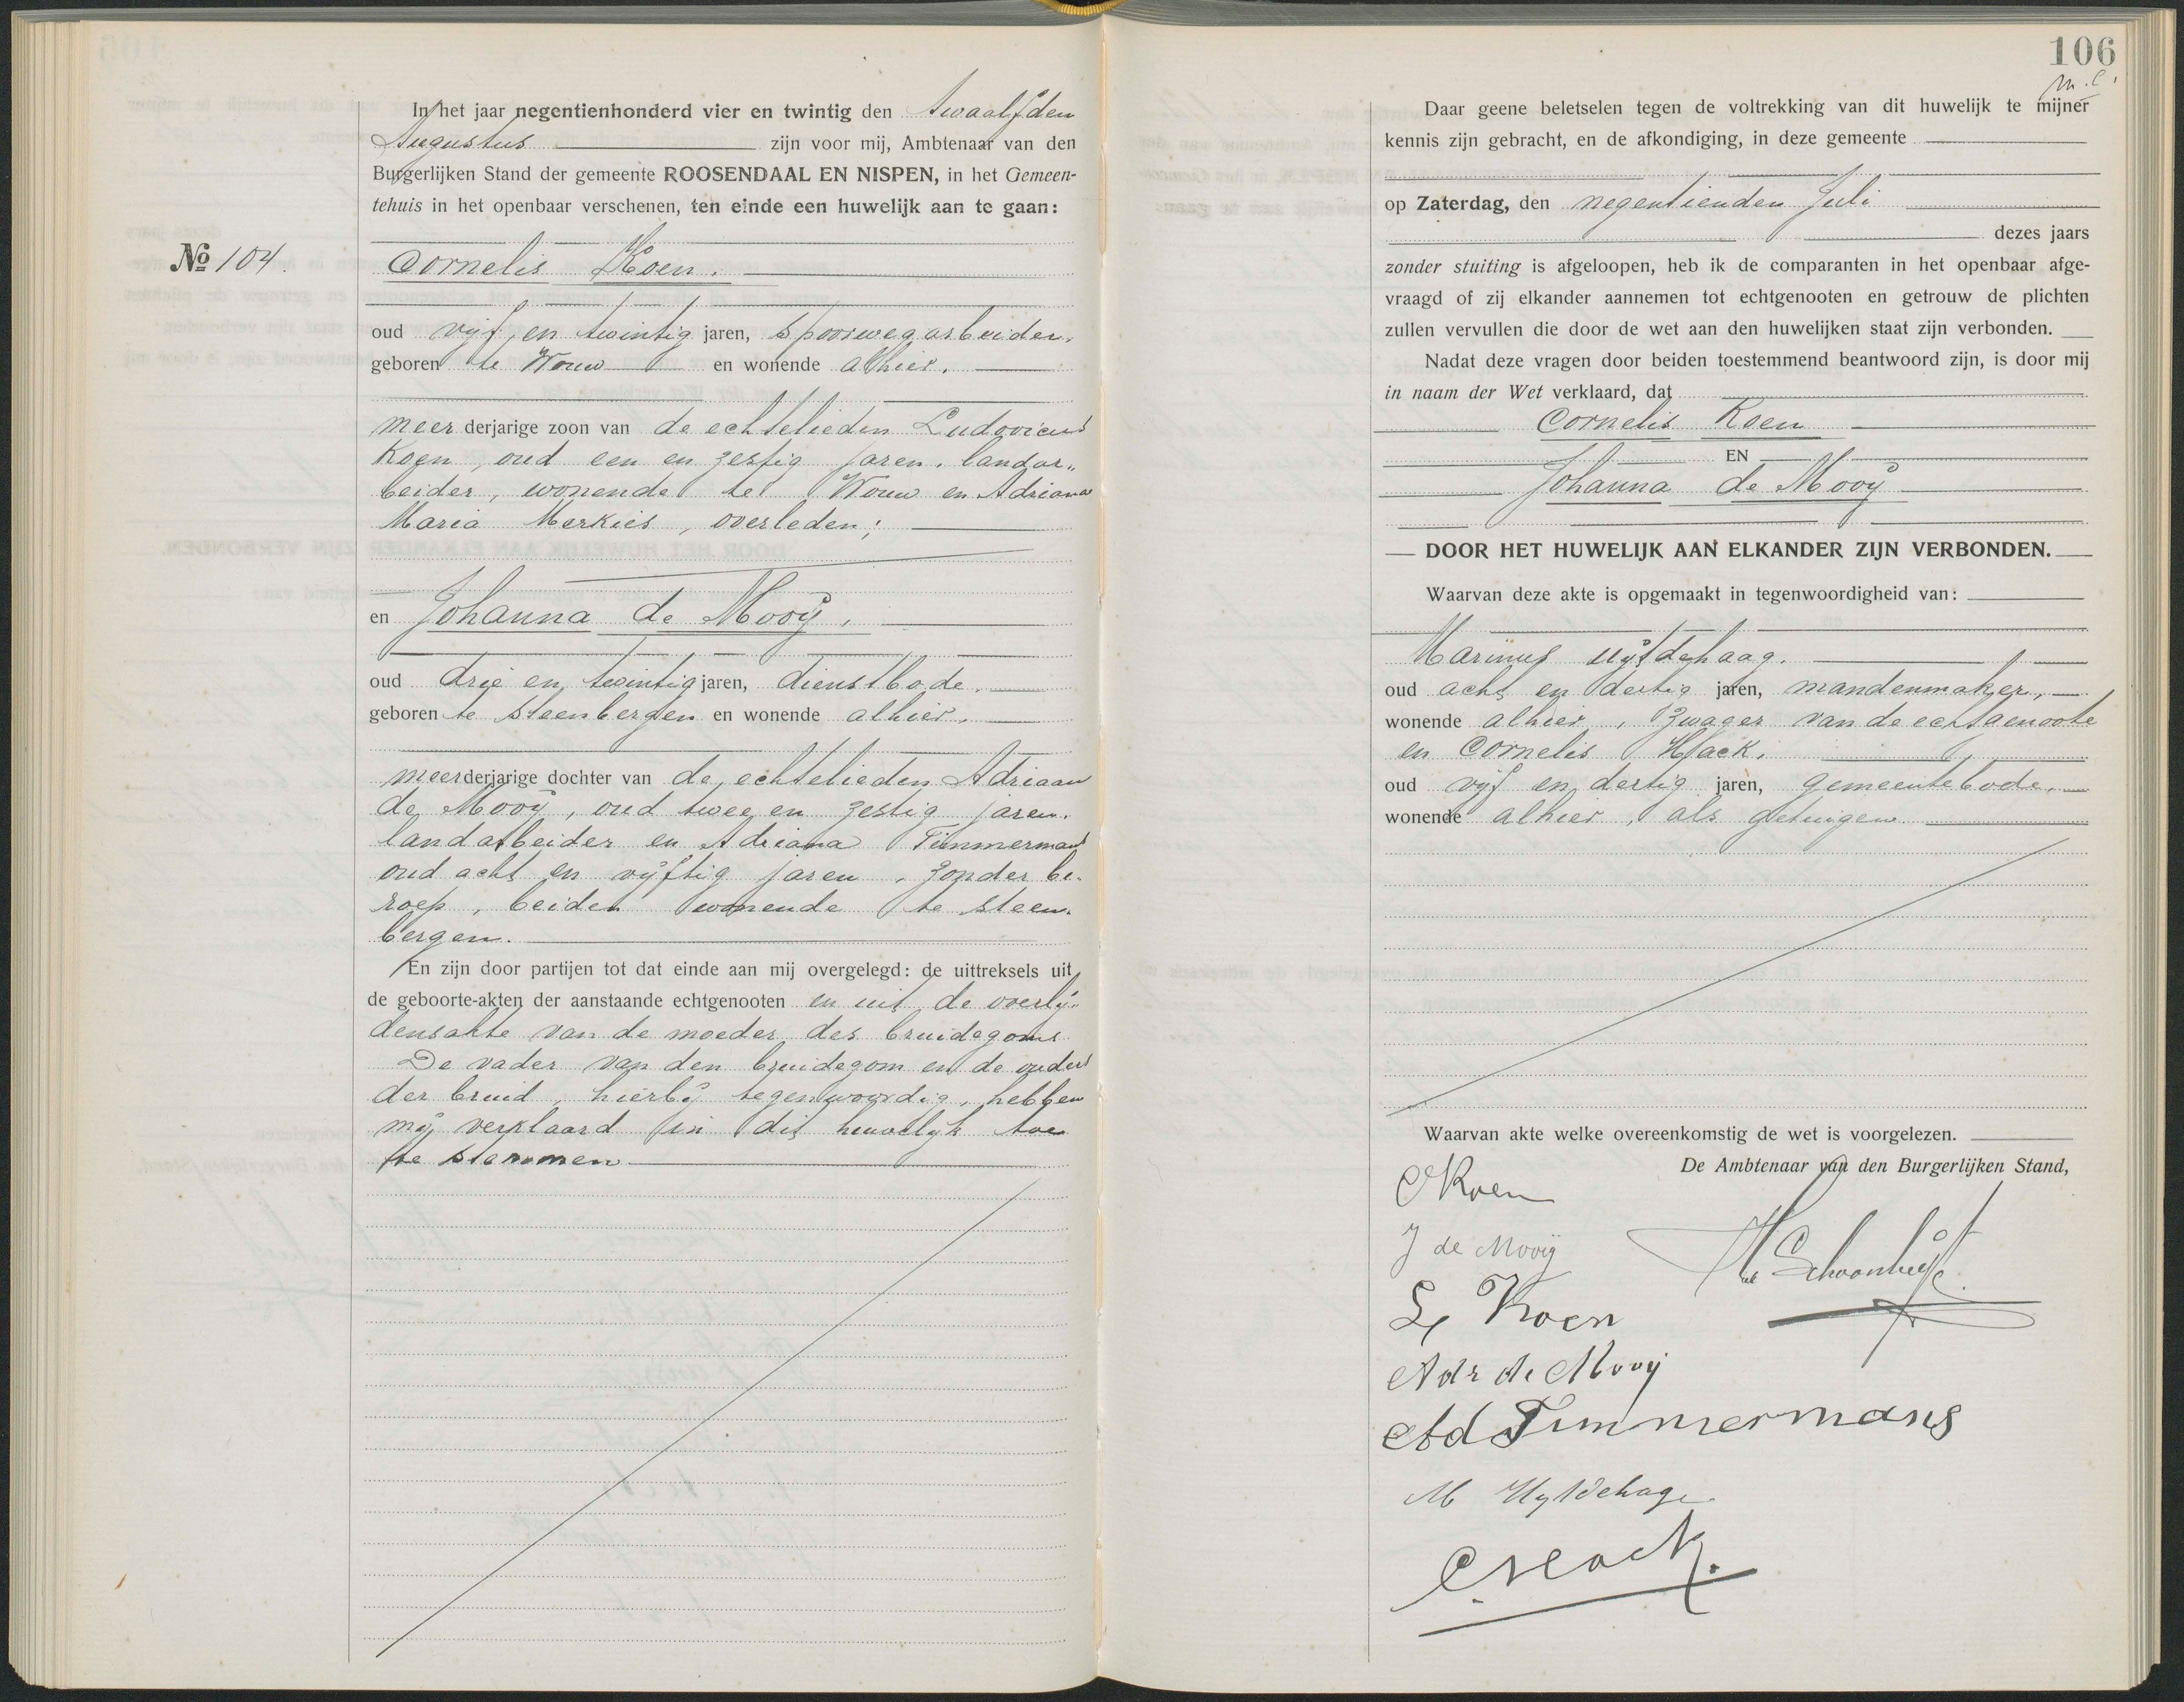 In het jaar negentienhonderd vier en twintig den twaalfden
Augustus zijn voor mij, Ambtenaar van den
Burgerlijken Stand der gemeente ROOSENDAAL EN NISPEN, in het Gemeen-
tehuis in het openbaar verschenen, ten einde een huwelijk aan te gaan:
No 104.
Cornelis Koen.
oud vijf en twintig jaren, spoorwegarbeider,
geboren te Wouw en wonende alhier,
meerderjarige zoon van de echtelieden Ludovicus
Koen, oud een en zestig jaren, landar„
beider, wonende te Wouw en Adriana
Maria Merkies, overleden;
en Johanna de Mooij,
oud drie en twintig jaren, dienstbode,
geboren te Steenbergen en wonende alhier,
meerderjarige dochter van de echtelieden Adriaan
de Mooij, oud twee en zestig jaren,
landarbeider en Adriana Timmermans
oud acht en vijftig jaren, zonder be-
roep, beiden wonende te Steen-
bergen.
En zijn door partijen tot dat einde aan mij overgelegd: de uittreksels uit
de geboorte-akten der aanstaande echtgenooten en uit de overlij„
densakte van de moeder des bruidegoms
De vader van den bruidegom en de ouders
der bruid, hierbij tegenwoordig, hebben
mij verklaard in dit huwelijk toe
te stemmen
106
m.l.
Daar geene beletselen tegen de voltrekking van dit huwelijk te mijner
kennis zijn gebracht, en de afkondiging, in deze gemeente
op Zaterdag, den negentienden Juli
dezes jaars
zonder stuiting is afgeloopen, heb ik de comparanten in het openbaar afge-
vraagd of zij elkander aannemen tot echtgenooten en getrouw de plichten
zullen vervullen die door de wet aan den huwelijken staat zijn verbonden.
Nadat deze vragen door beiden toestemmend beantwoord zijn, is door mij
in naam der Wet verklaard, dat
Cornelis Koen
EN
Johanna de Mooij
DOOR HET HUWELIJK AAN ELKANDER ZIJN VERBONDEN.
Waarvan deze akte is opgemaakt in tegenwoordigheid van:
Marinus uijtdehaag.
oud acht en dertig jaren, mandenmaker,
wonende alhier, zwager van de echtgenoote
en Cornelis Hack,
oud vijf en dertig jaren, gemeentebode,
wonende alhier, als getuigen
Waarvan akte welke overeenkomstig de wet is voorgelezen.
De Ambtenaar van den Burgerlijken Stand,
C Koen
J de Mooij
L Koen
Adr de Mooij
Ad Timmermans
M Uytdehage
C Hack.